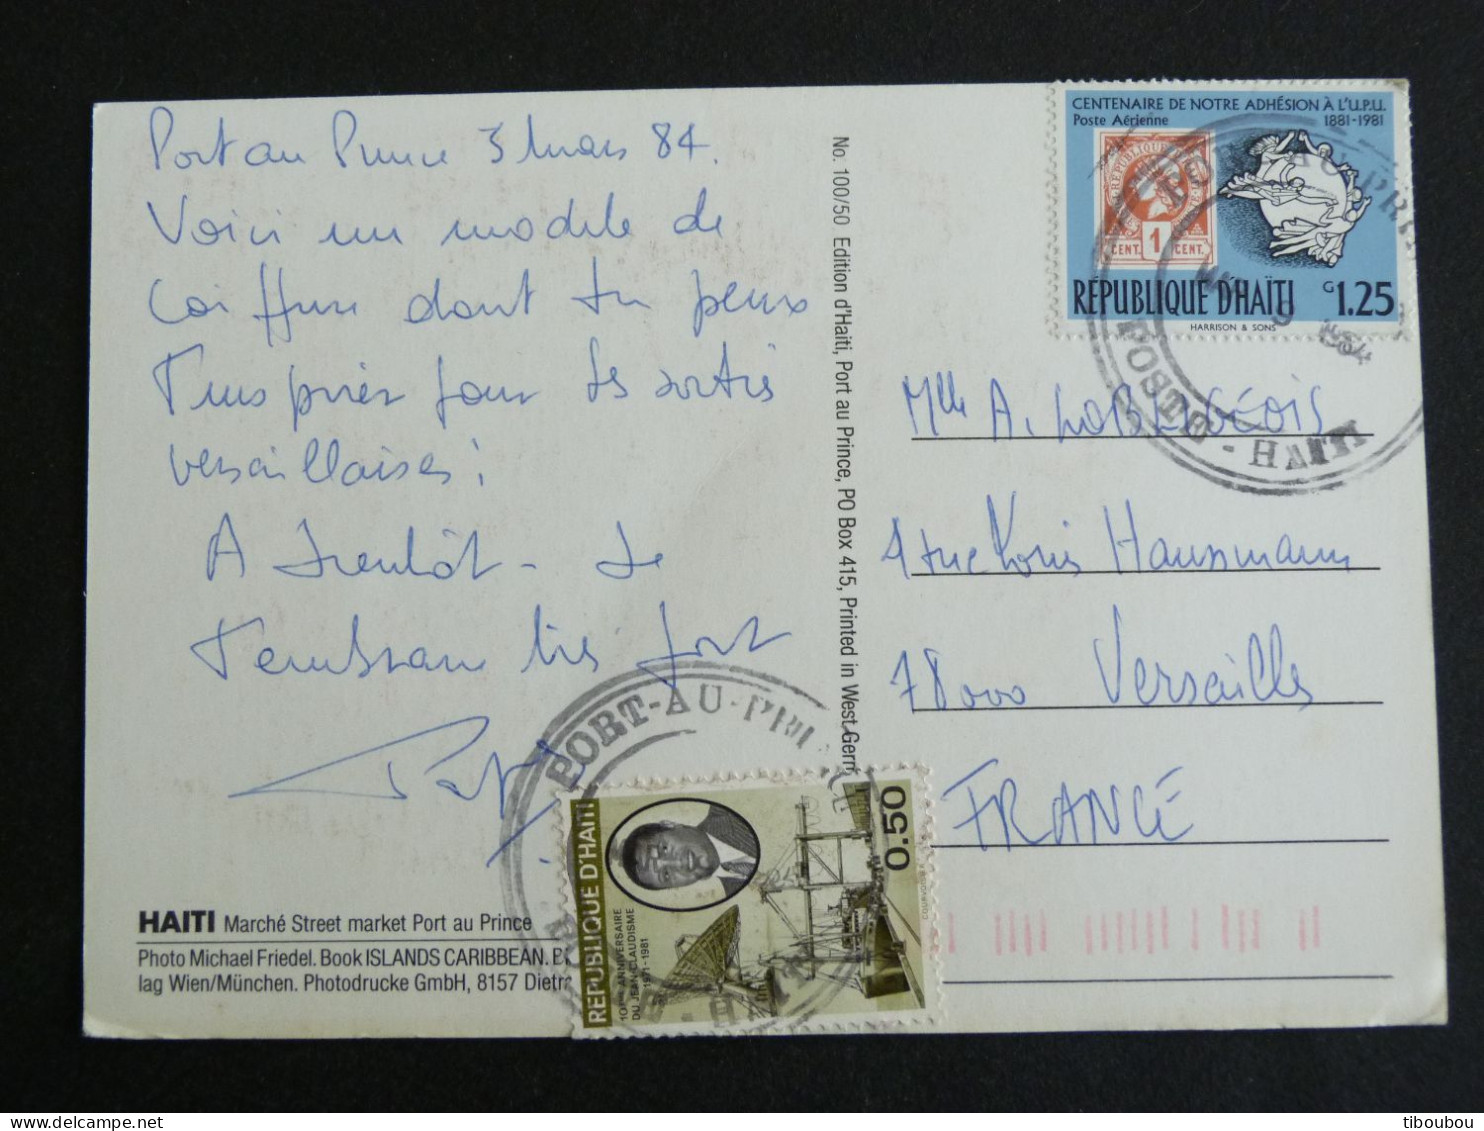 Port au Prince 3 mars 84.
Voici un modèle de
Coiffure dont tu peux
T'inspirer pour tes sorties
versaillaises!
A bientôt - Je
t'embrasse très fort
Papa
HAITI Marché Street market Port au Prince
Photo Michael Friedel. Book ISLANDS CARIBBEAN.
lag Wien/München. Photodrucke GmbH, 8157 Dietra
No. 100/50 Edition d'Haiti, Port au Prince, PO Box 415, Printed in West Germ
CENTENAIRE DE NOTRE ADHÉSION À L'U.P.U.
Poste Aérienne 1881-1981
RÉPUBLIQUE
1
CENT. CENT.
RÉPUBLIQUE D'HAÏTI G 1.25
HARRISON & SONS
PORT-AU-PRI
POSTE - HAITI
Mlle A.
4 rue Louis Haussmann
78000 Versailles
FRANCE
PORT-AU-PRI CE
RÉPUBLIQUE D'HAITI
10ème ANNIVERSAIRE
DU JEAN-CLAUDISME
1971-1981
0.50
tiboubou